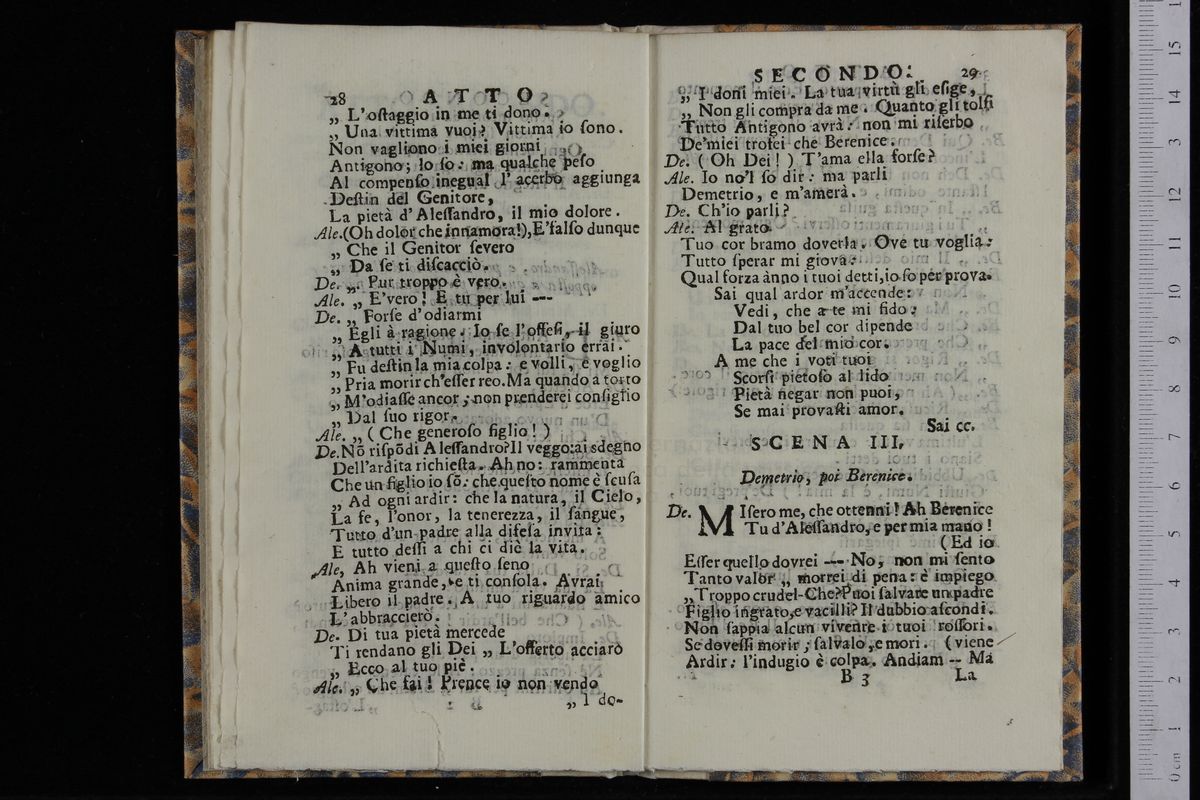 28 ATTO
„ L'oſtaggio in me ti dono.
„ Una vittima vuoi? Vittima io ſono.
Non vagliono i miei giorni
Antigono; lo ſo: ma qualche peſo
Al compenſo inegual l'acerbo aggiunga
Deſtin del Genitore,
La pietà d'Aleſſandro, il mio dolore.
Ale. (Oh dolor che innamora!) E'falſo dunque
„ Che il Genitor ſevero
„ Da ſe ti diſcacciò.
De. „ Pur troppo è vero.
Ale. „ E'vero! E tu per lui ---
De. „ Forſe d'odiarmi
„ Egli à ragione. Io ſe l'offeſi, il giuro
„ A tutti i Numi, involontario errai.
„ Fu deſtin la mia colpa: e volli, e voglio
„ Pria morir ch'eſſer reo. Ma quando a torto
„ M'odiaſſe ancor, non prenderei conſiglio
„ Dal ſuo rigor.
Ale. „ (Che generoſo figlio!)
De. Nō riſpōdi Aleſſandro? Il veggo: ai sdegno
Dell'ardita richieſta. Ah no: rammenta
Che un figlio io ſō: che queſto nome è ſcuſa
„ Ad ogni ardir: che la natura, il Cielo,
La fe, l'onor, la tenerezza, il ſangue,
Tutto d'un padre alla difeſa invita:
E tutto deſſi a chi ci diè la vita.
Ale, Ah vieni a queſto ſeno
Anima grande, e ti conſola. Avrai
Libero il padre. A tuo riguardo amico
L'abbracciero.
De. Di tua pietà mercede
Ti rendano gli Dei „ L'offerto acciarò
„ Ecco al tuo piè.
Ale. „ Che fai! Prence io non vendo
„ I do-
SECONDO. 29
„ I doni miei. La tua virtù gli eſige,
„ Non gli compra da me. Quanto gli tolſi
Tutto Antigono avrà: non mi riſerbo
De'miei trofei che Berenice.
De. (Oh Dei!) T'ama ella forſe?
Ale. Io no'l ſo dir: ma parli
Demetrio, e m'amerà.
De. Ch'io parli?
Ale. Al grato
Tuo cor bramo doverla. Ove tu voglia:
Tutto ſperar mi giova:
Qual forza ànno i tuoi detti, io ſo per prova.
Sai qual ardor m'accende:
Vedi, che a te mi fido:
Dal tuo bel cor dipende
La pace del mio cor.
A me che i voti tuoi
Scorſi pietoſo al lido
Pietà negar non puoi,
Se mai provaſti amor.
Sai cc.
SCENA III.
Demetrio, poi Berenice.
De. MIſero me, che ottenni! Ah Berenice
Tu d'Aleſſandro, e per mia mano!
(Ed io
Eſſer quello dovrei --- No, non mi ſento
Tanto valor „ morrei di pena: è impiego
„ Troppo crudel-Che? Puoi ſalvare un padre
Figlio ingrato, e vacilli? Il dubbio aſcondi.
Non ſappia alcun vivente i tuoi roſſori.
Se doveſſi morir; ſalvalo, e mori. (viene
Ardir: l'indugio è colpa. Andiam -- Ma
B 3 La